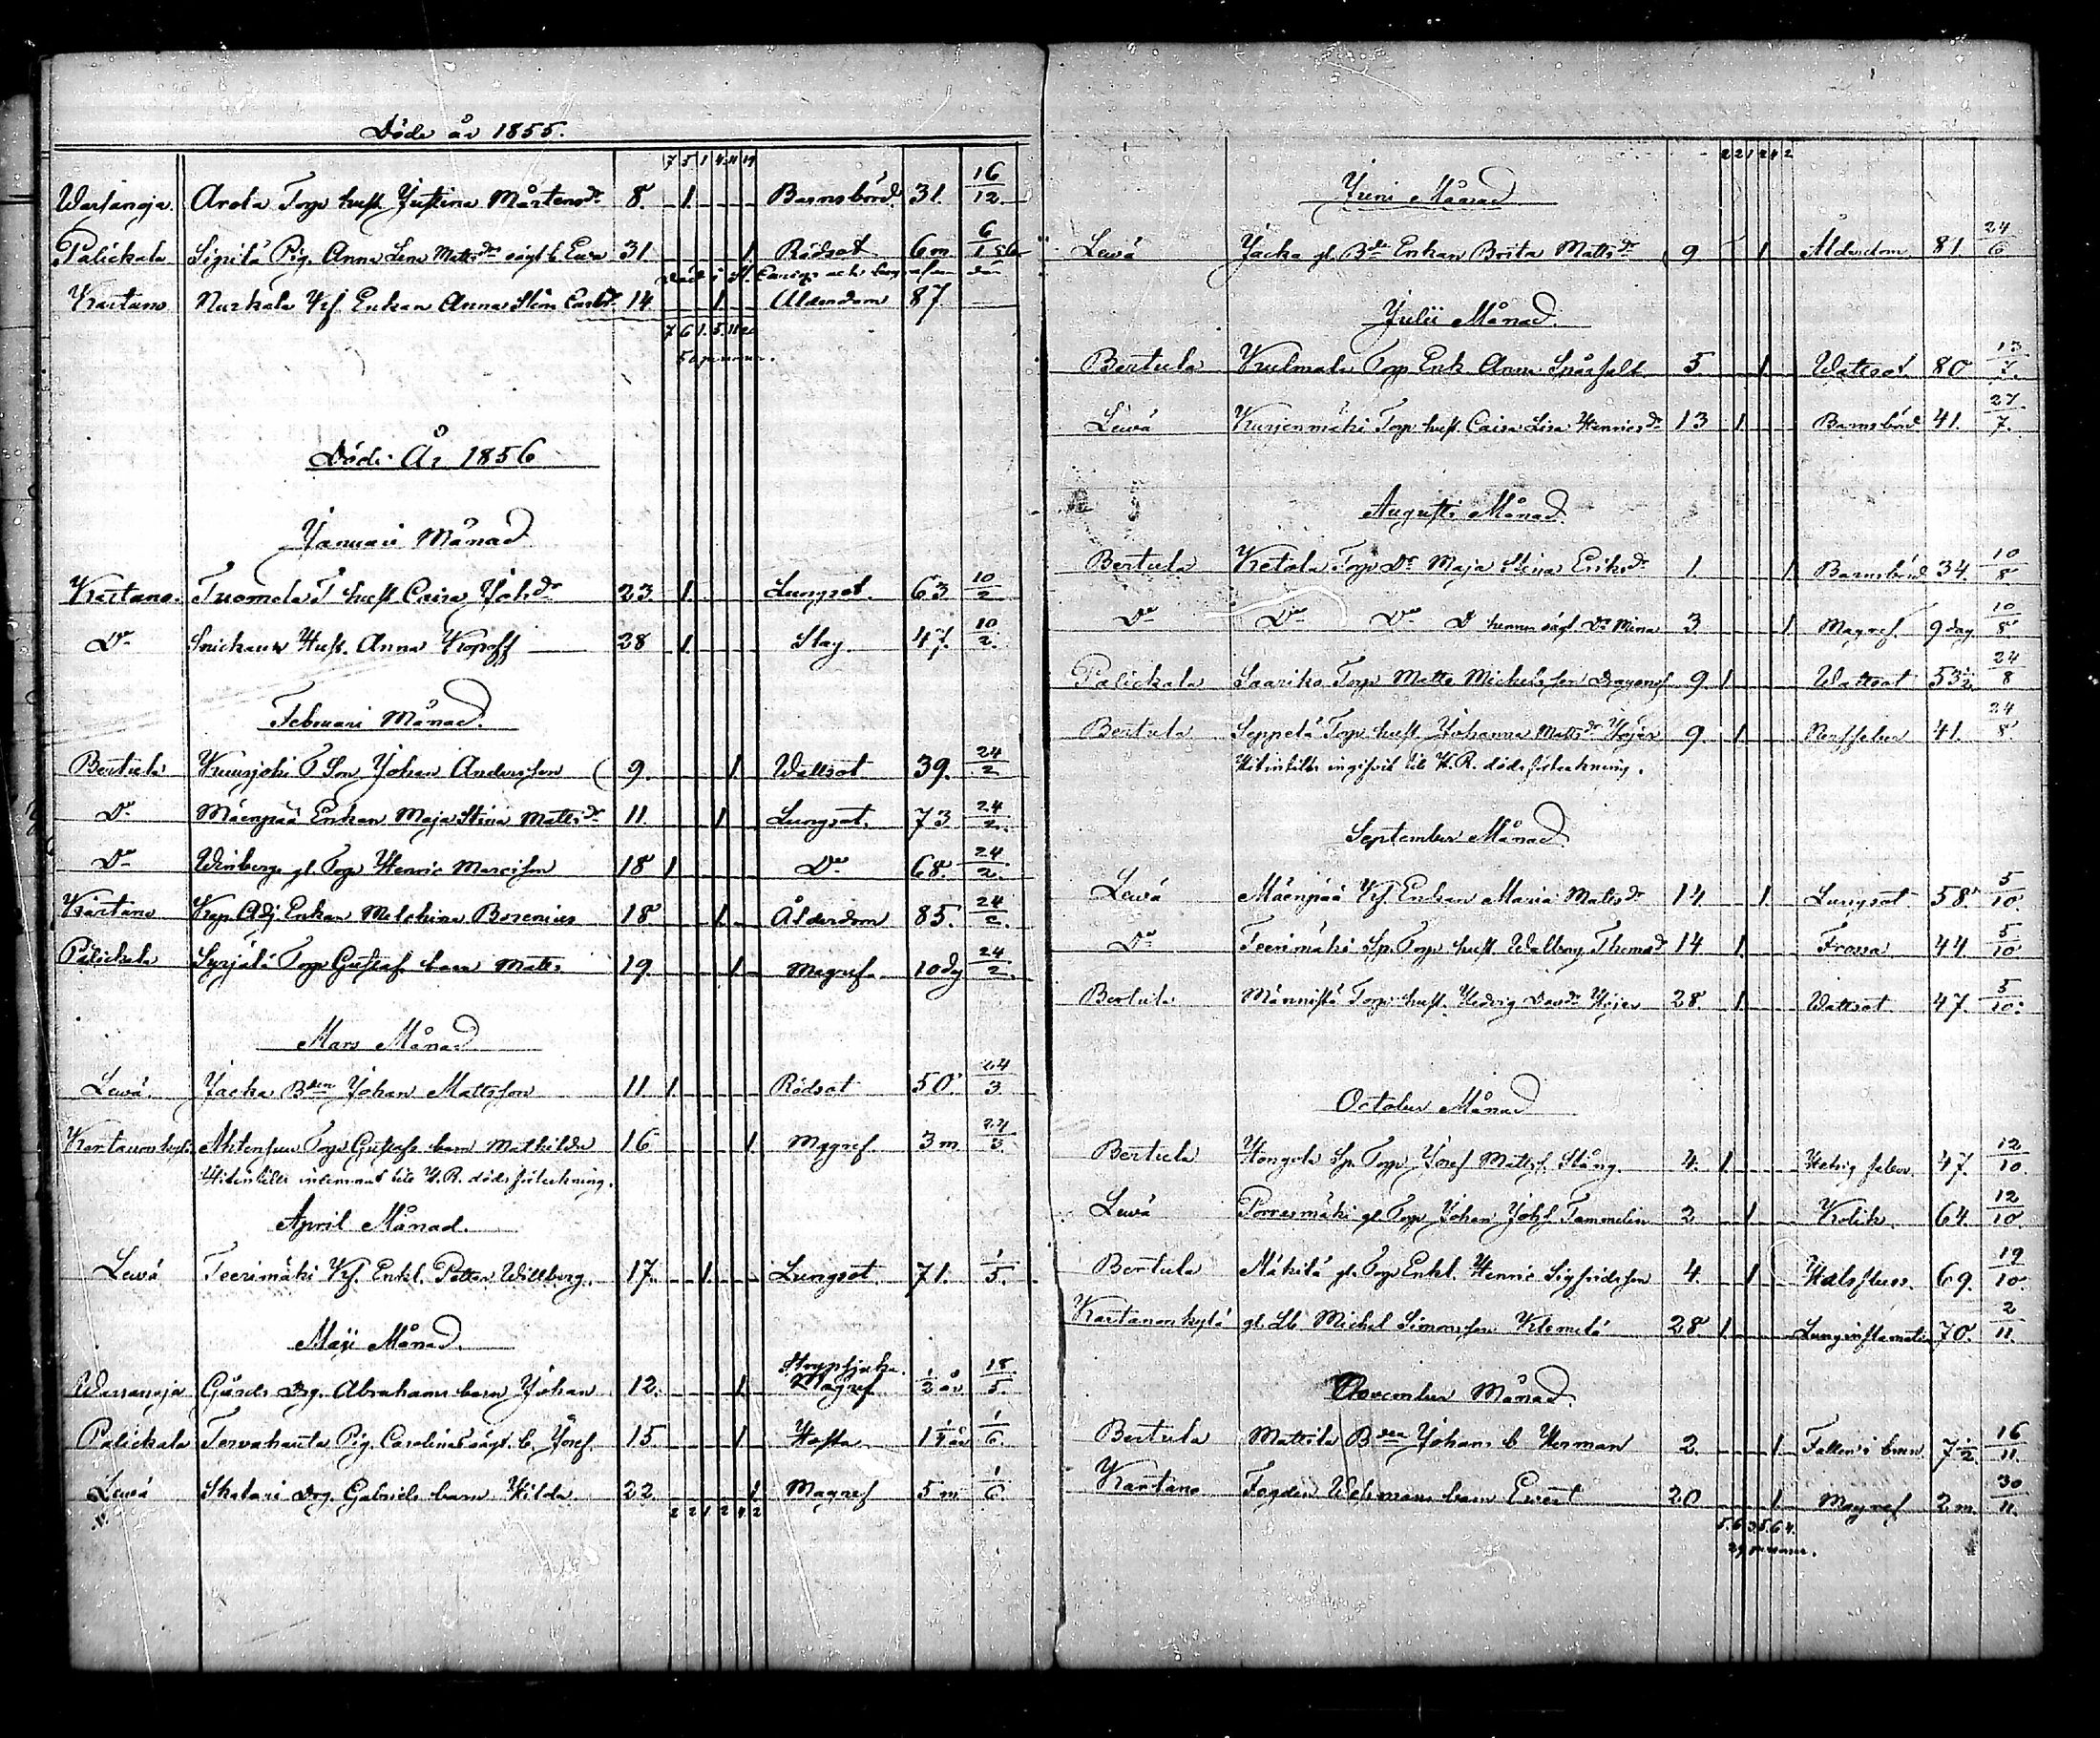 Döde år 1855.
7 5 1 4 11 19
Warsanoja. Arola Torp. hust. Justina Mårtensdr 8. 1. Barnsbörd 31. 16/12
Palickala Sipilä Pig. Anna Lena Mattsdr oägt b. Eva 31. 1 Rödsot 6 m. 6/1
Kartano Nurkala Enkan Anna Stina 14 1 Ålderdom 87.
7 6 1. 5. 11 20
50 personer.
Döde År 1856
Januari Månad
Kartano. Tuomola T. hust. Caisa Johdr 23. 1. Lungsot. 63 10/2
Do Snickaren Hust. Anna Kopoff 28 1. Slag. 47. 10/2.
Februari Månad.
Bertula Kuusjoki T. Son Johan Andersson 9. 1. Wattsot 39. 24/2
Do Mäenpää Enkan Maja Stina Mattsdr 11. 1 Lungsot. 73 24/2.
Do Winberg gl. Torp. Henric Marcisson 18 1 Do 68. 24/2.
Kartano Kap. Adj. Enkan Melchina Borenius 18. 1. Ålderdom 85. 24/2.
Palickala Syrjälä Torp. Gustafs barn Matts 19. 1 Magref. 10 dg 24/2.
Mars Månad
Lewä. Jacka Bden Johan Mattsson 11 1. Rödsot 50. 24/3
Kartanonkylä Torp. Gustafs barn Mathilda 16 1 Magref. 3 m 24/3
Hitintills inlemnat till H. R. dödsförteckning.
April Månad.
Lewä Teerimäki Enkl. Petter Willberg. 17. 1. Lungsot. 71. 1/5.
Maji Månad.
Warsanoja Gårds Drg. Abrahams barn Johan 12. 1. Strypsjuka Magref ½ år 18/5.
Palickala Tervahauta Pig. Carolinas oägt. b. Josef. 15. 1. Hosta 1¼ år 1/6.
Lewä Skatari Drg. Gabriels barn Hilda 22 1 Magref 5 m 1/6
2 2 1 2 4 2
2 2 1 2 4 2
Juni Månad
Lewä Jacka gl. Bde Enkan Brita Mattsdr 9 1. Ålderdom 81. 24/6
Julii Månad.
Bertula Kulmala Torp. Enk. Anna Spårfelt 5. 1. Wattsot 80 13/7.
Lewä Kurjenmäki Torp. hust. Caisa Lisa Henricsdr 13 1. Barnsbörd 41. 27/7.
Augusti Månad.
Bertula Ketola Torp. Dr Maja Stina Eriksdr 1. 1 Barnsbörd 34. 10/8
Do Do Do D hennes oägt. Dr Mina 3. 1 Magref. 9 dag 10/8
Palickala Saariko Torp. Matts Michelsson Dragonf 9. 1. Wattsot 53½ 24/8
Bertula Seppelä Torp. hust. Johanna Mattsdr Höijer 9. 1. Nerffeber 41. 24/8.
Hitintills ingifvit till H. R. dödsförteckning.
September Månad
Lewä Mäenpää Enkan Maria Mattsdr 14. 1. Lungsot 58. 5/10.
Do Teerimäki Sp. Torp. hust. Walborg Thomasd 14 1. Frossa 44. 5/10
Bertula Männistö Torp. hust. Hedvig Davdr Höjer 28. 1. Wattsot. 47. 5/10.
October Månad
Bertula Hongola Sp. Torp. Josef Mattsf. Stång. 4. 1. Hetsig feber 47. 12/10.
Lewä Porrasmäki gl. Torp. Johan Johsf. Tammelin 2 1. Kolik. 64. 12/10.
Bertula Mäkilä gl. Torp. Enkl. Henric Sigfridsson 4. 1. Halsfluss. 69. 19/10.
Kartanonkylä gl. Sld. Michel Simonsson Klemelä 28. 1. Lunginflamation 70. 2/11.
November Månad.
Bertula Mattila Bden Johans b Herman 2. 1. Fallen i brun 7½ 16/11.
Kartano Fogden Wehmans barn Evert 20 1. Magref 2 m. 30/11.
5. 6 3 5. 6 4.
29 personer.